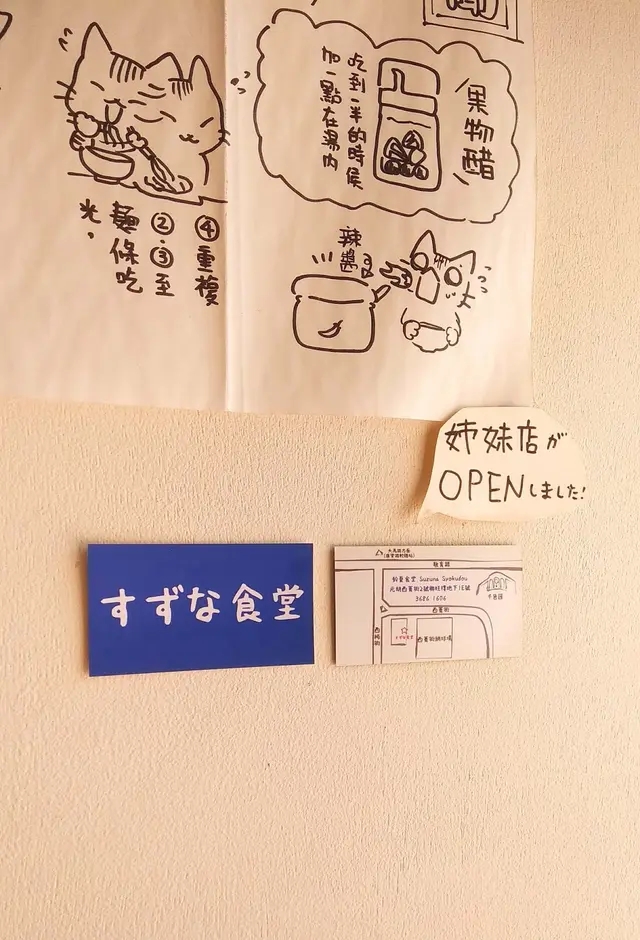 果物醋
吃到一半的時候
加一點在湯內
④重複
②.③至
麵條吃
光。
辣醬
姉妹店が
OPENしました!
すずな食堂
鈴菜食堂 Suzuna Syokudou
3686 1606
西菁街